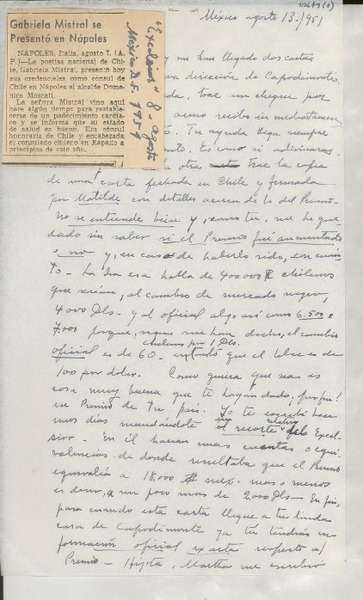 México agosto 13/951
Gabriela Mistral se
Presentó en Nápoles
NAPOLES, Italia, agosto 7. (A.
P.)—La poetisa nacional de Chi-
le, Gabriela Mistral, presentó hoy
sus credenciales como cónsul de
Chile en Nápoles al alcalde Dome-
nico Moscati.
La señora Mistral vino aquí
hace algún tiempo para restable-
cerse de un padecimiento cardíaco
y se informa que su estado
de salud es bueno. Era cónsul
honoraria de Chile y encabezaba
el consulado chileno en Rapallo a
principios de este año.
"Excelsior" 8 - agosto
México D.F. 1951
me han llegado dos cartas
dirección de Capodimonte.
trae un cheque por
acuso recibo inmediatamen
Tu ayuda llega siempre
Es como si adivinaras
otra trae la copia
de una carta fechada en Chile y firmada
por Matilde con detalles acerca de lo del Premio
no se entiende bien y, como tú, me he que
dado sin saber si el Premio fué aumentado
o no y, en caso de haberlo sido, en cuán
to - La habla de 400000 $ chilenos
que serían, al cambio de mercado negro,
4000 Dls - y al oficial algo así como 6.500 o
7000 porque, según me han dicho, el cambio
chilenos por 1 Dls.
oficial es de 60 que el libre es de
100 por dolar. Como quiera que sea es
cosa muy buena que te hayan dado, por fin!
un Premio de tu país. Yo te escribí hace
unos días mandándote el recorte del Excel
sior - En él hacían unas cuentas o equi
valencias de donde resultaba que el Premio
equivalía a 18.000 $ mex. más o menos
es decir, a un poco más de 2000 Dls - En fin,
para cuando esta carta llegue a tu linda
casa de Capodimonte ya tú tendrás in
formación oficial exacta respecto al
Premio - Hijita, Martha me escribió